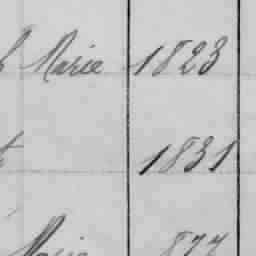 Marie 1823
1831
Marie 1877